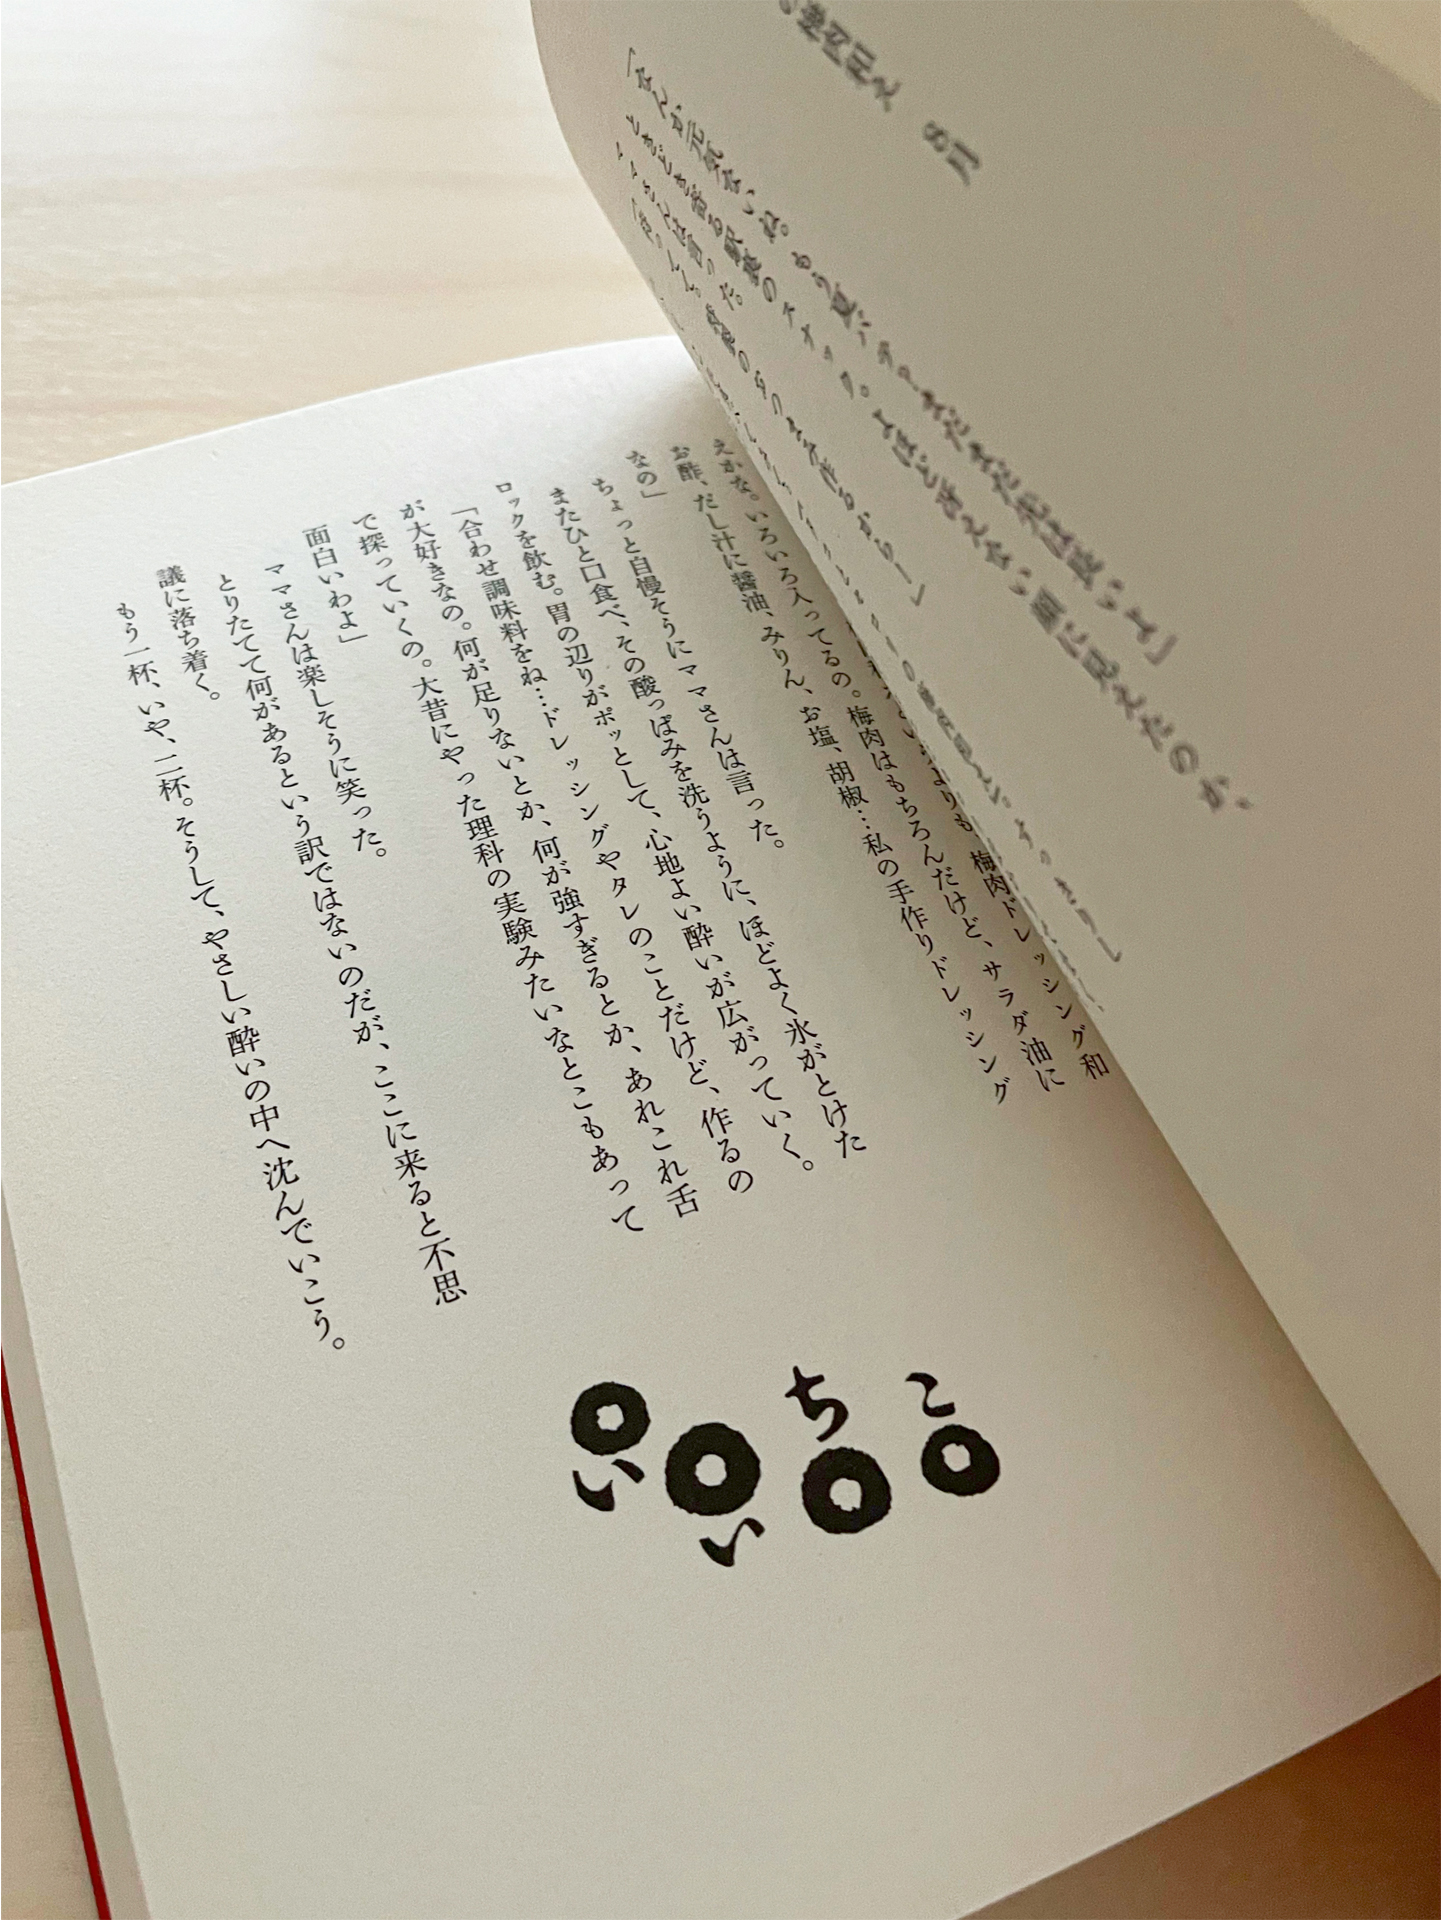 の梅肉和え 8月
「なんか元気ないね。もう夏バテ？まだまだ先は長いよ」
ときどき寄る駅裏のスナック。よほど冴えない顔に見えたのか、
ママさんは言った。
よりも、梅肉ドレッシング和
えかな。いろいろ入ってるの。梅肉はもちろんだけど、サラダ油に
お酢、だし汁に醤油、みりん、お塩、胡椒…私の手作りドレッシング
なの」
ちょっと自慢そうにママさんは言った。
またひと口食べ、その酸っぱみを洗うように、ほどよく氷がとけた
ロックを飲む。胃の辺りがポッとして、心地よい酔いが広がっていく。
「合わせ調味料をね…ドレッシングやタレのことだけど、作るの
が大好きなの。何が足りないとか、何が強すぎるとか、あれこれ舌
で探っていくの。大昔にやった理科の実験みたいなとこもあって
面白いわよ」
ママさんは楽しそうに笑った。
とりたてて何があるという訳ではないのだが、ここに来ると不思
議に落ち着く。
もう一杯、いや、二杯。そうして、やさしい酔いの中へ沈んでいこう。
いいちこ